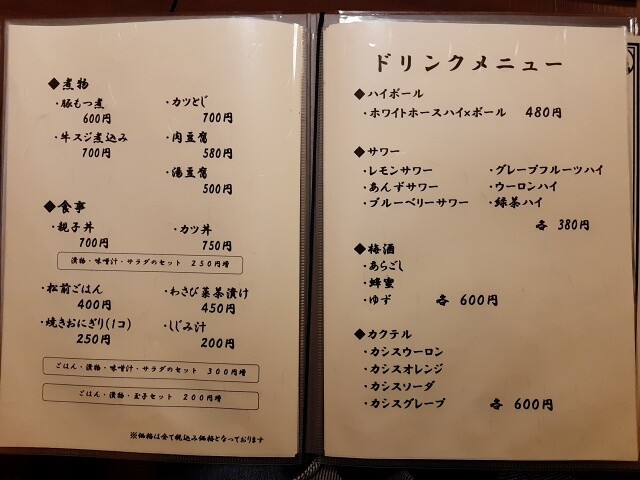 ◆煮物
・豚もつ煮
600円
・カツとじ
700円
・牛スジ煮込み
700円
・肉豆腐
580円
・湯豆腐
500円
◆食事
・親子丼
700円
・カツ丼
750円
漬物・味噌汁・サラダのセット 250円増
・松前ごはん
400円
・わさび葉茶漬け
450円
・焼きおにぎり(1コ)
250円
・しじみ汁
200円
ごはん・漬物・味噌汁・サラダのセット 300円増
ごはん・漬物・玉子セット 200円増
※価格は全て税込み価格となっております
ドリンクメニュー
◆ハイボール
・ホワイトホースハイ×ボール 480円
◆サワー
・レモンサワー
・あんずサワー
・ブルーベリーサワー
・グレープフルーツハイ
・ウーロンハイ
・緑茶ハイ
各 380円
◆梅酒
・あらごし
・蜂蜜
・ゆず 各 600円
◆カクテル
・カシスウーロン
・カシスオレンジ
・カシスソーダ
・カシスグレープ 各 600円